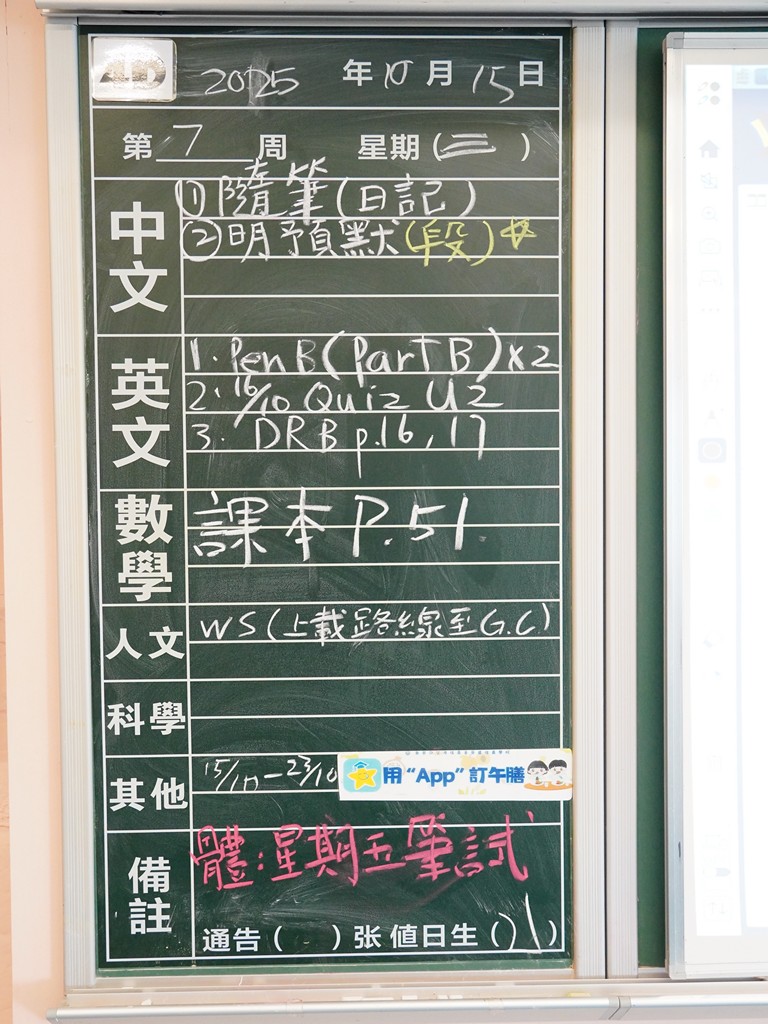 4D 2025 年 10 月 15 日
第 7 周 星期 (三)
中文
① 隨筆 (日記)
② 明預默 (段)
英文
1. Pen B (Part B) x 2
2. 16/10 Quiz U2
3. DRB p.16, 17
數學
課本 P.51
人文 WS (上載路線至 G.C)
科學
其他 15/10 - 23/10 用 “App” 訂午膳
備註
體:星期五筆試
通告 ( ) 张 值日生 (21)